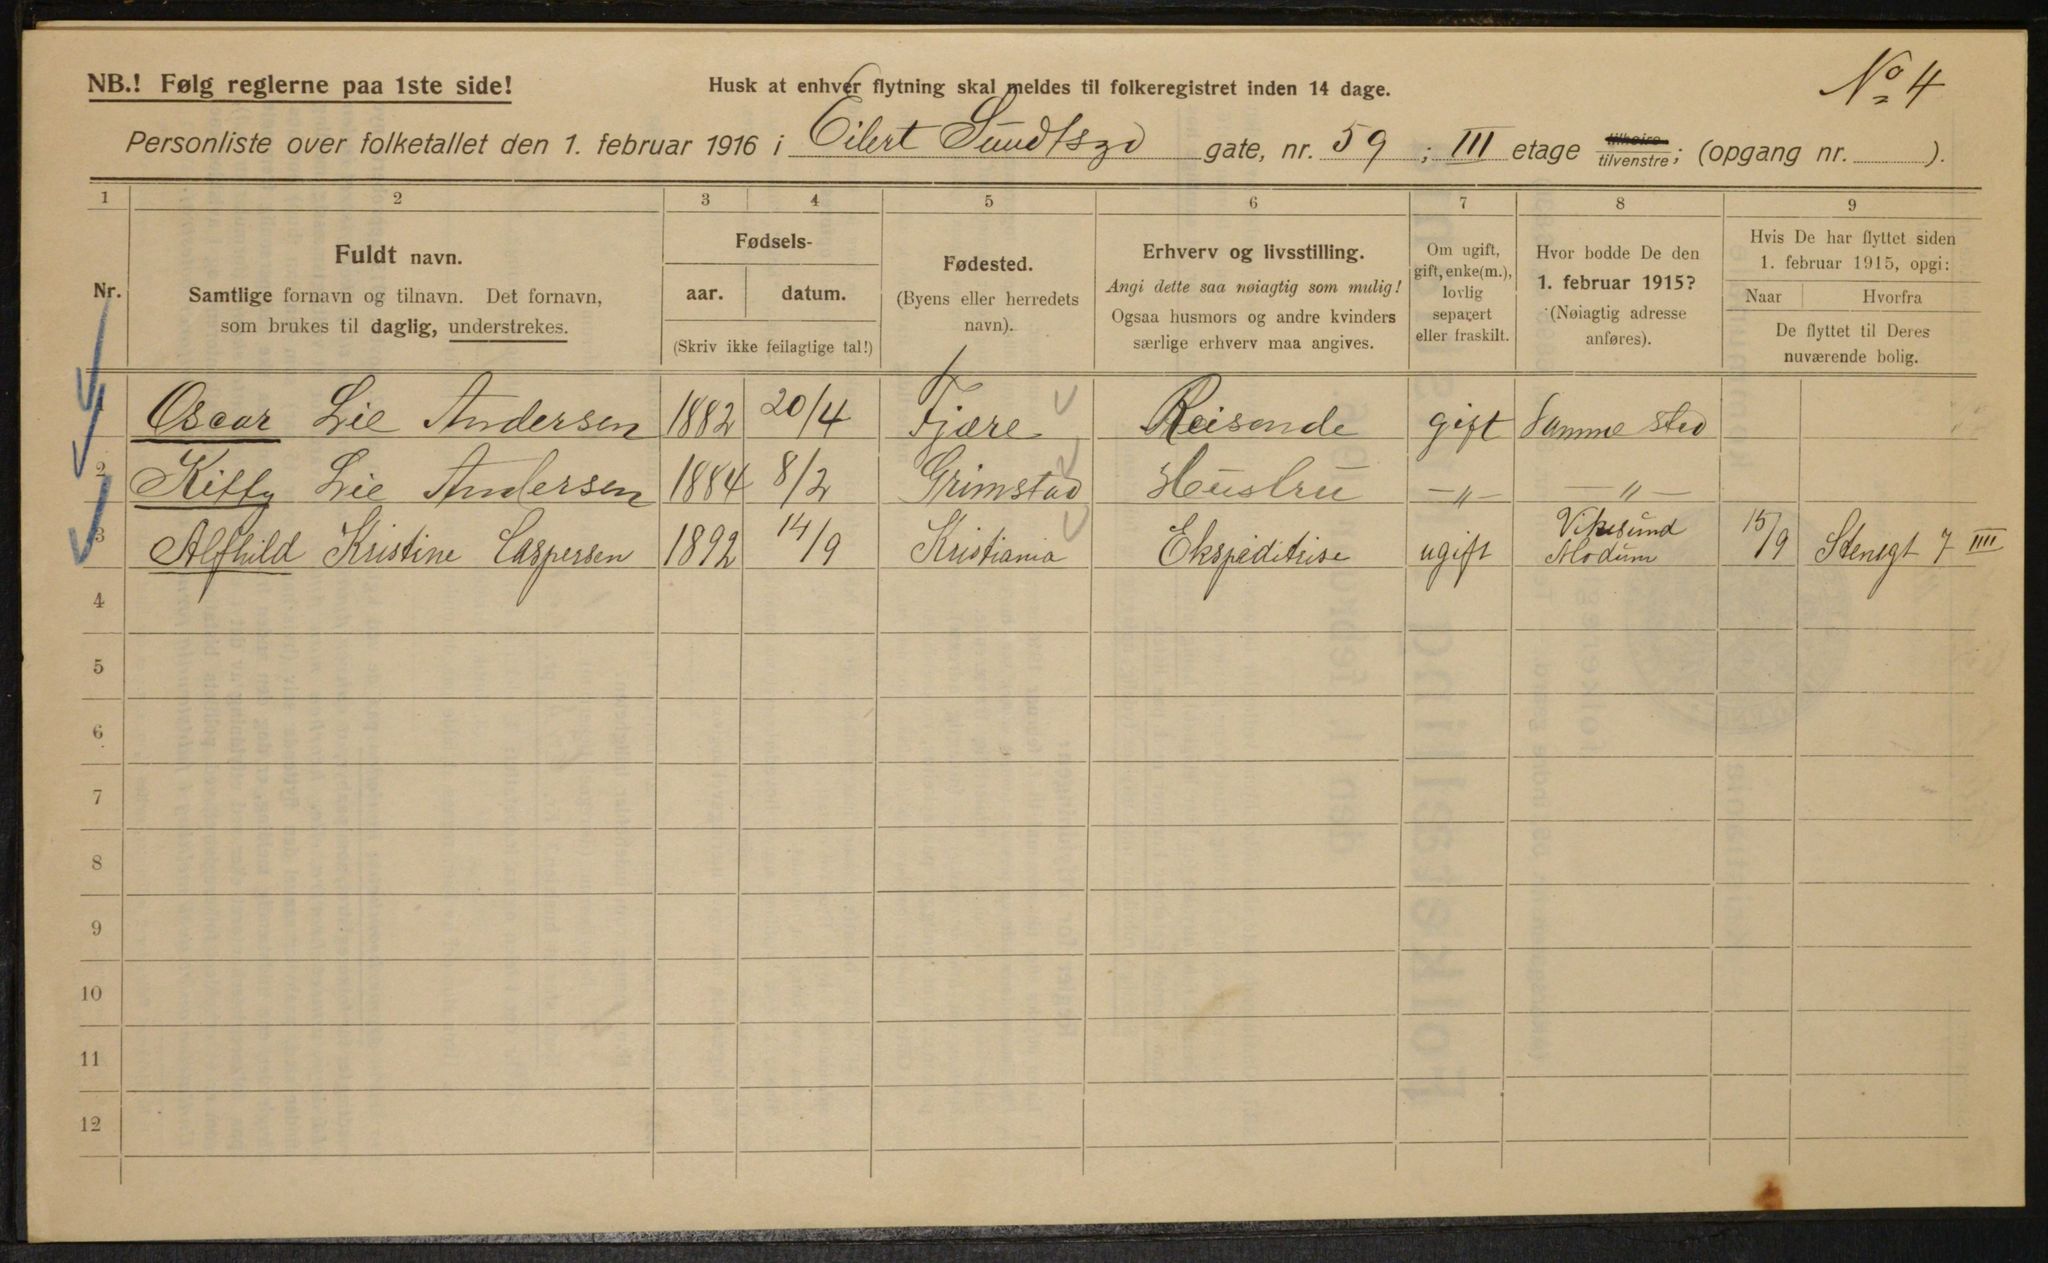 No 4
NB.! Følg reglerne paa 1ste side!
Husk at enhver flytning skal meldes til folkeregistret inden 14 dage.
Personliste over folketallet den 1. februar 1916 i Eilert Sundtsgd gate, nr. 59 ; III etage tilhøire tilvenstre; (opgang nr. ).
1 2 3 4 5 6 7 8 9
Nr.
Fuldt navn.
Samtlige fornavn og tilnavn. Det fornavn,
som brukes til daglig, understrekes.
Fødsels-
aar. datum.
(Skriv ikke feilagtige tal!)
Fødested.
(Byens eller herredets
navn).
Erhverv og livsstilling.
Angi dette saa nøiagtig som mulig!
Ogsaa husmors og andre kvinders
særlige erhverv maa angives.
Om ugift,
gift, enke(m.),
lovlig
separert
eller fraskilt.
Hvor bodde De den
1. februar 1915?
(Nøiagtig adresse
anføres).
Hvis De har flyttet siden
1. februar 1915, opgi:
Naar Hvorfra
De flyttet til Deres
nuværende bolig.
1 Oscar Lie Andersen 1882 20/4 Fjære Reisende gift Samme sted
2 Kitty Lie Andersen 1884 8/2 Grimstad Hustru —〃— —〃—
3 Alfhild Kristine Caspersen 1892 14/9 Kristiania Ekspeditrise ugift Vikesund Modum 15/9 Stensgt 7 IIII
4
5
6
7
8
9
10
11
12